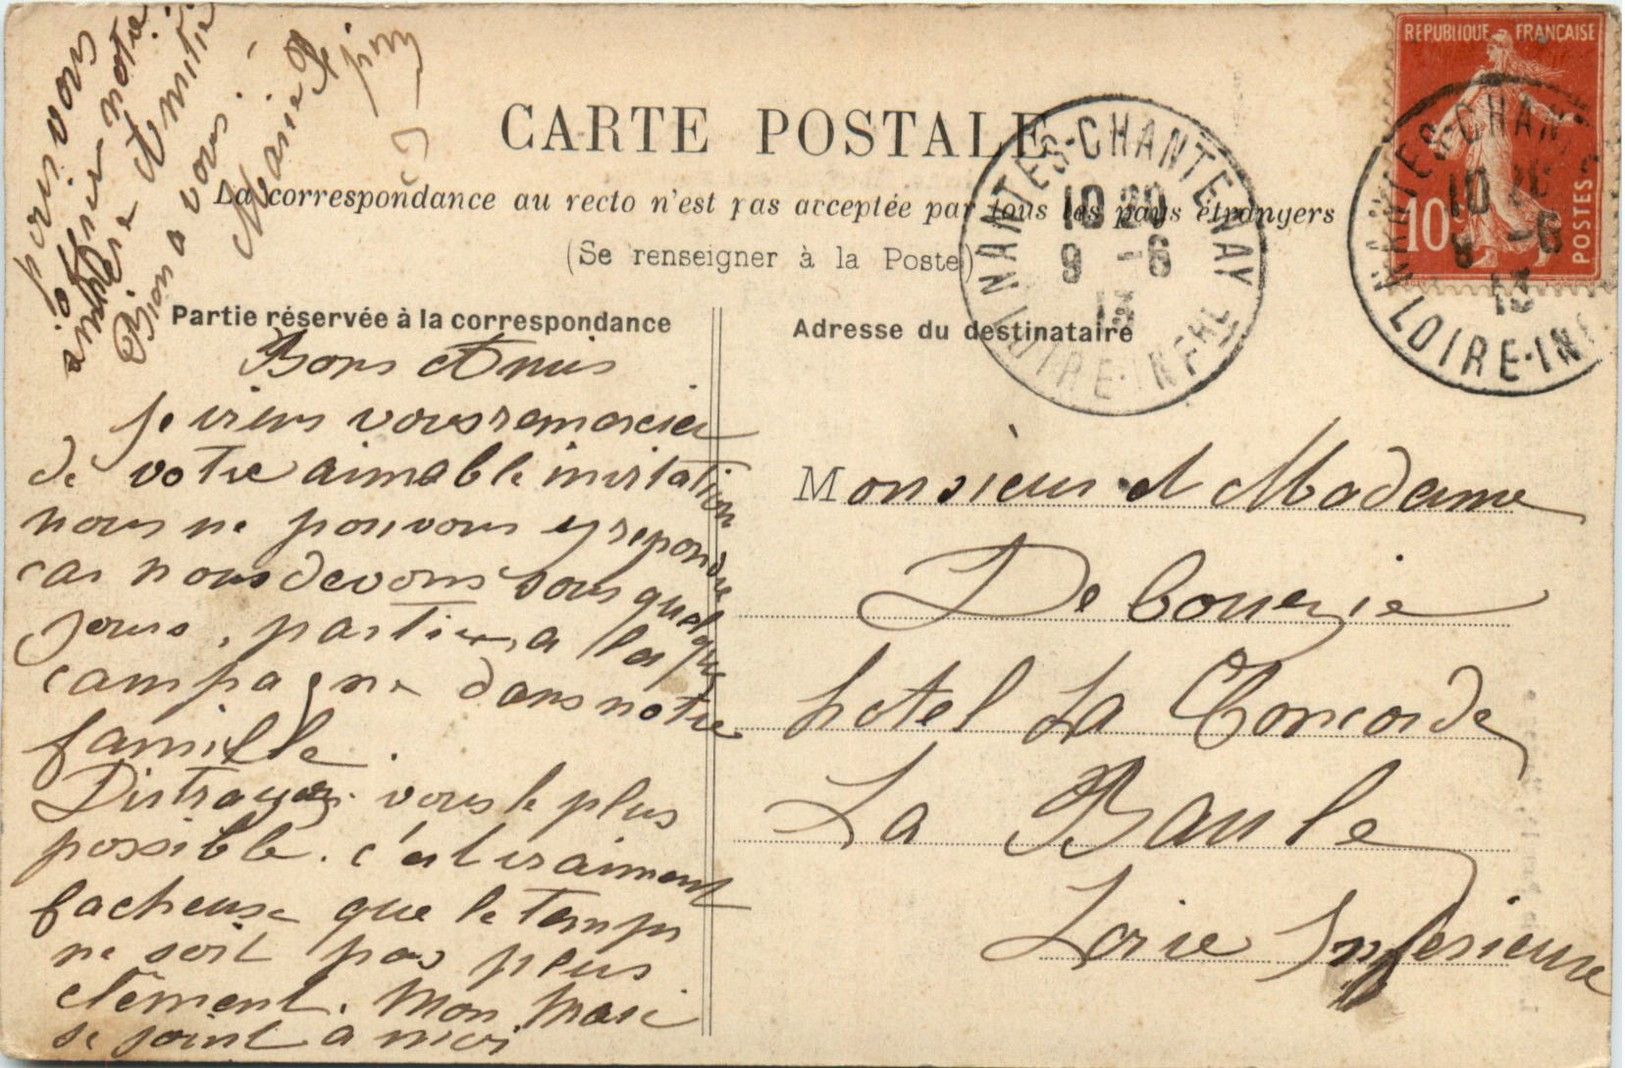 CARTE POSTALE
La correspondance au recto n'est pas acceptée par tous les pays étrangers
(Se renseigner à la Poste)
REPUBLIQUE FRANÇAISE
10
POSTES
NANTES-CHANTENAY
10 20
9 - 6
13
LOIRE-INFRE
NANTES-CHAN
10 20
9 - 6
13
LOIRE-INF
Partie réservée à la correspondance
Bons Amis
je viens vous remercier
de votre aimable invitation
nous ne pouvons y repondre
car nous devons sous quelques
jours, partir a la
campagne dans notre
famille.
Distrayez vous le plus
possible. c'est vraiment
facheuse que le temps
ne soit pas plus
clément. Mon Mari
se joint a moi
pour vous
offrir notre
sincère Amitié
Bien a vous.
Marie
Adresse du destinataire
Monsieur et Madame
Debouzie
hotel La Concorde
La Baule
Loire Inferieure